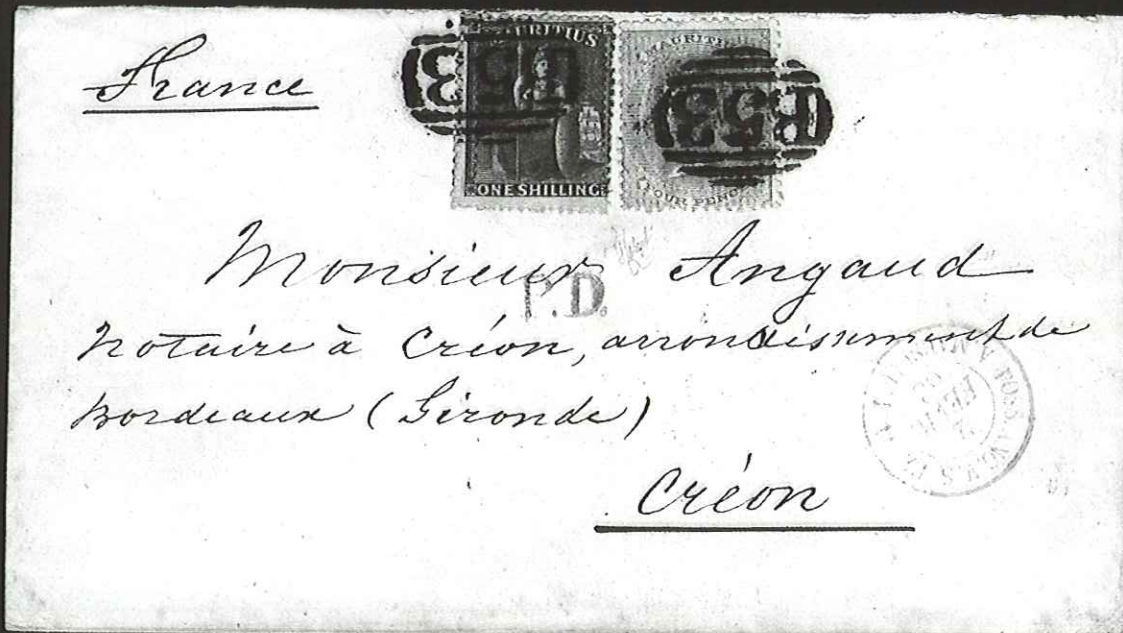 France
MAURITIUS
ONE SHILLING
MAURITIUS
FOUR PENCE
B53
B53
Monsieur Angaud
P.D.
Notaire à Créon, arrondissement de
Bordeaux (Gironde)
Créon